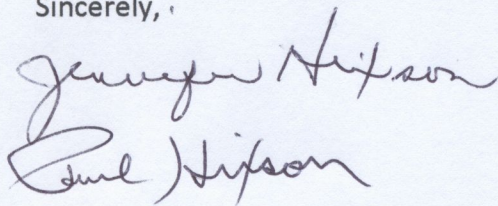 Sincerely,
Jennifer Hixson
Paul Hixson